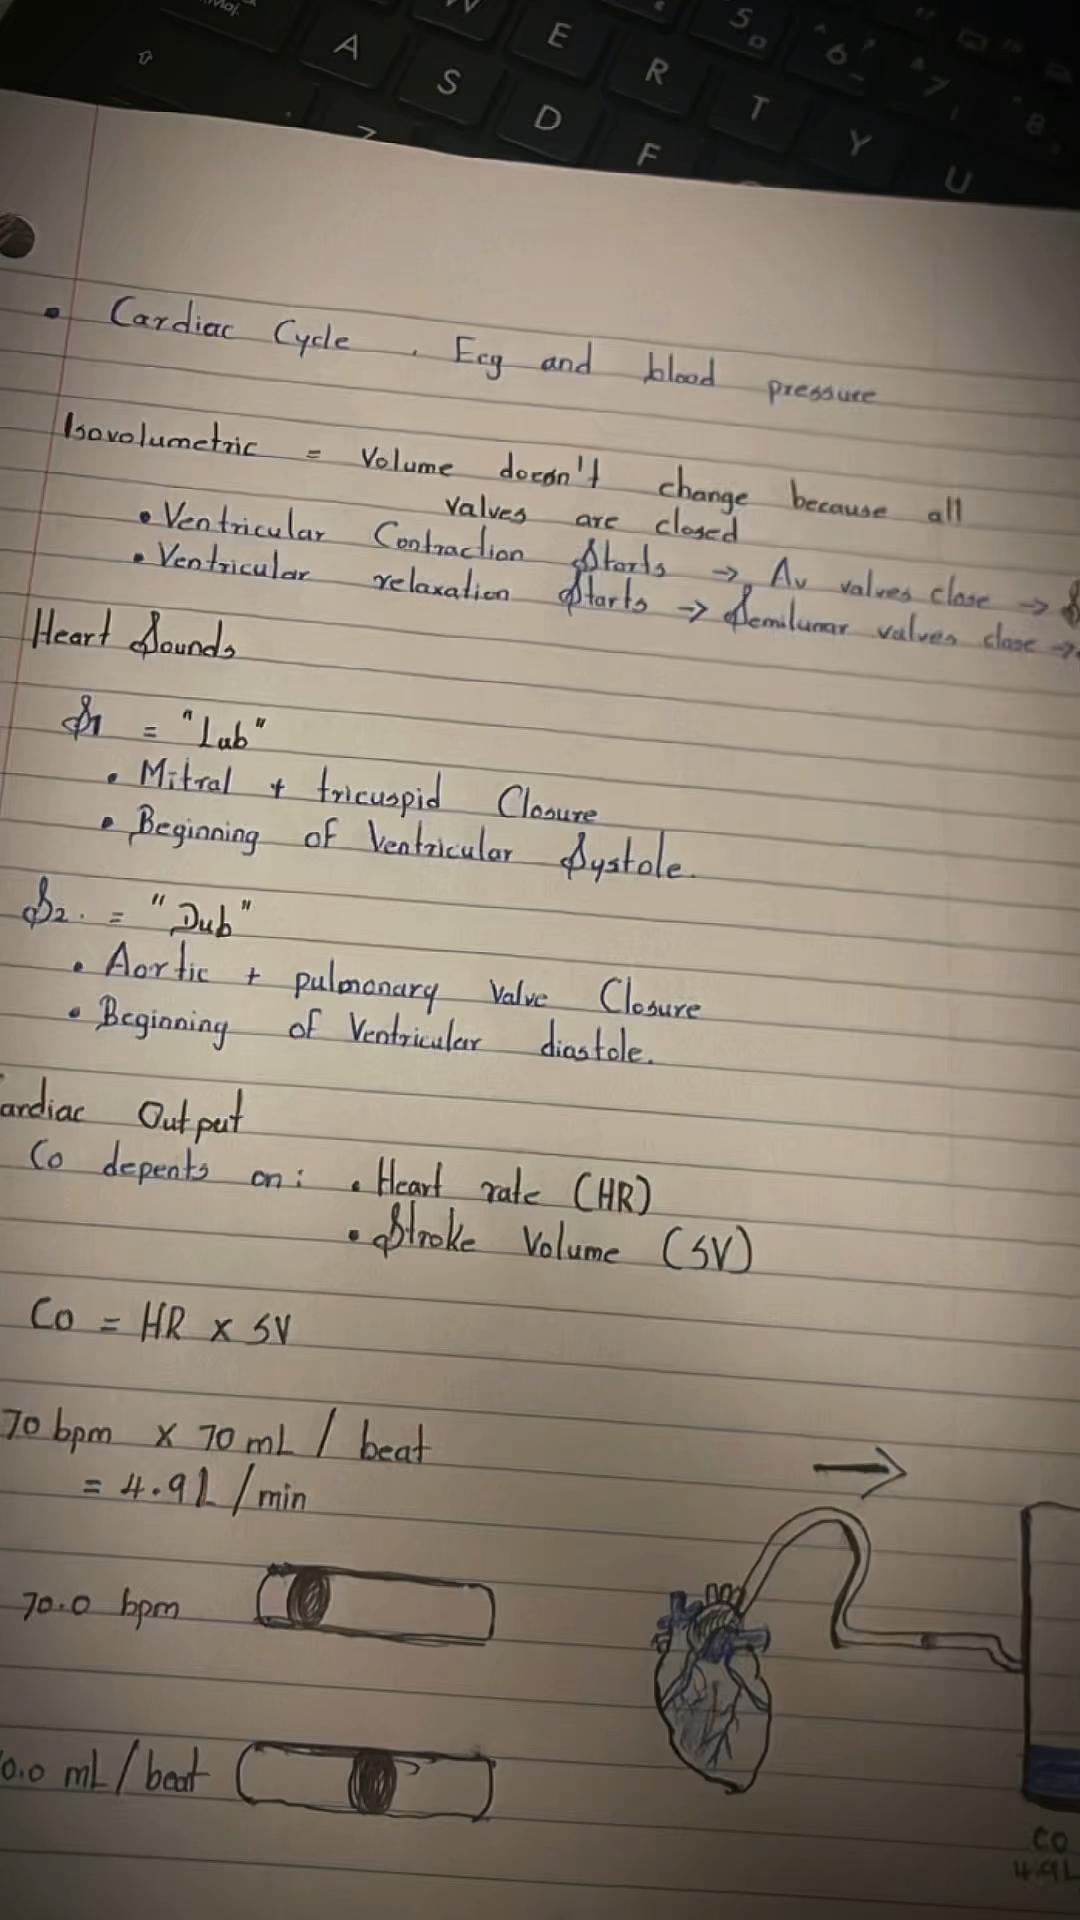 A S E D R F T Y U
5 6 7 8
• Cardiac Cycle . Ecg and blood pressure
Isovolumetric = Volume doesn't change because all
valves are closed
• Ventricular Contraction Starts → Av valves close → S
• Ventricular relaxation Starts → Semilunar valves close →
Heart Sounds
S1 = "Lub"
• Mitral + tricuspid Closure
• Beginning of Ventricular Systole.
S2. = "Dub"
• Aortic + pulmonary Valve Closure
• Beginning of Ventricular diastole.
ardiac Output
Co depents on: • Heart rate (HR)
• Stroke Volume (SV)
Co = HR x SV
70 bpm x 70 mL / beat
= 4.9 L /min
70.0 bpm
0.0 mL / beat
CO
4.9L